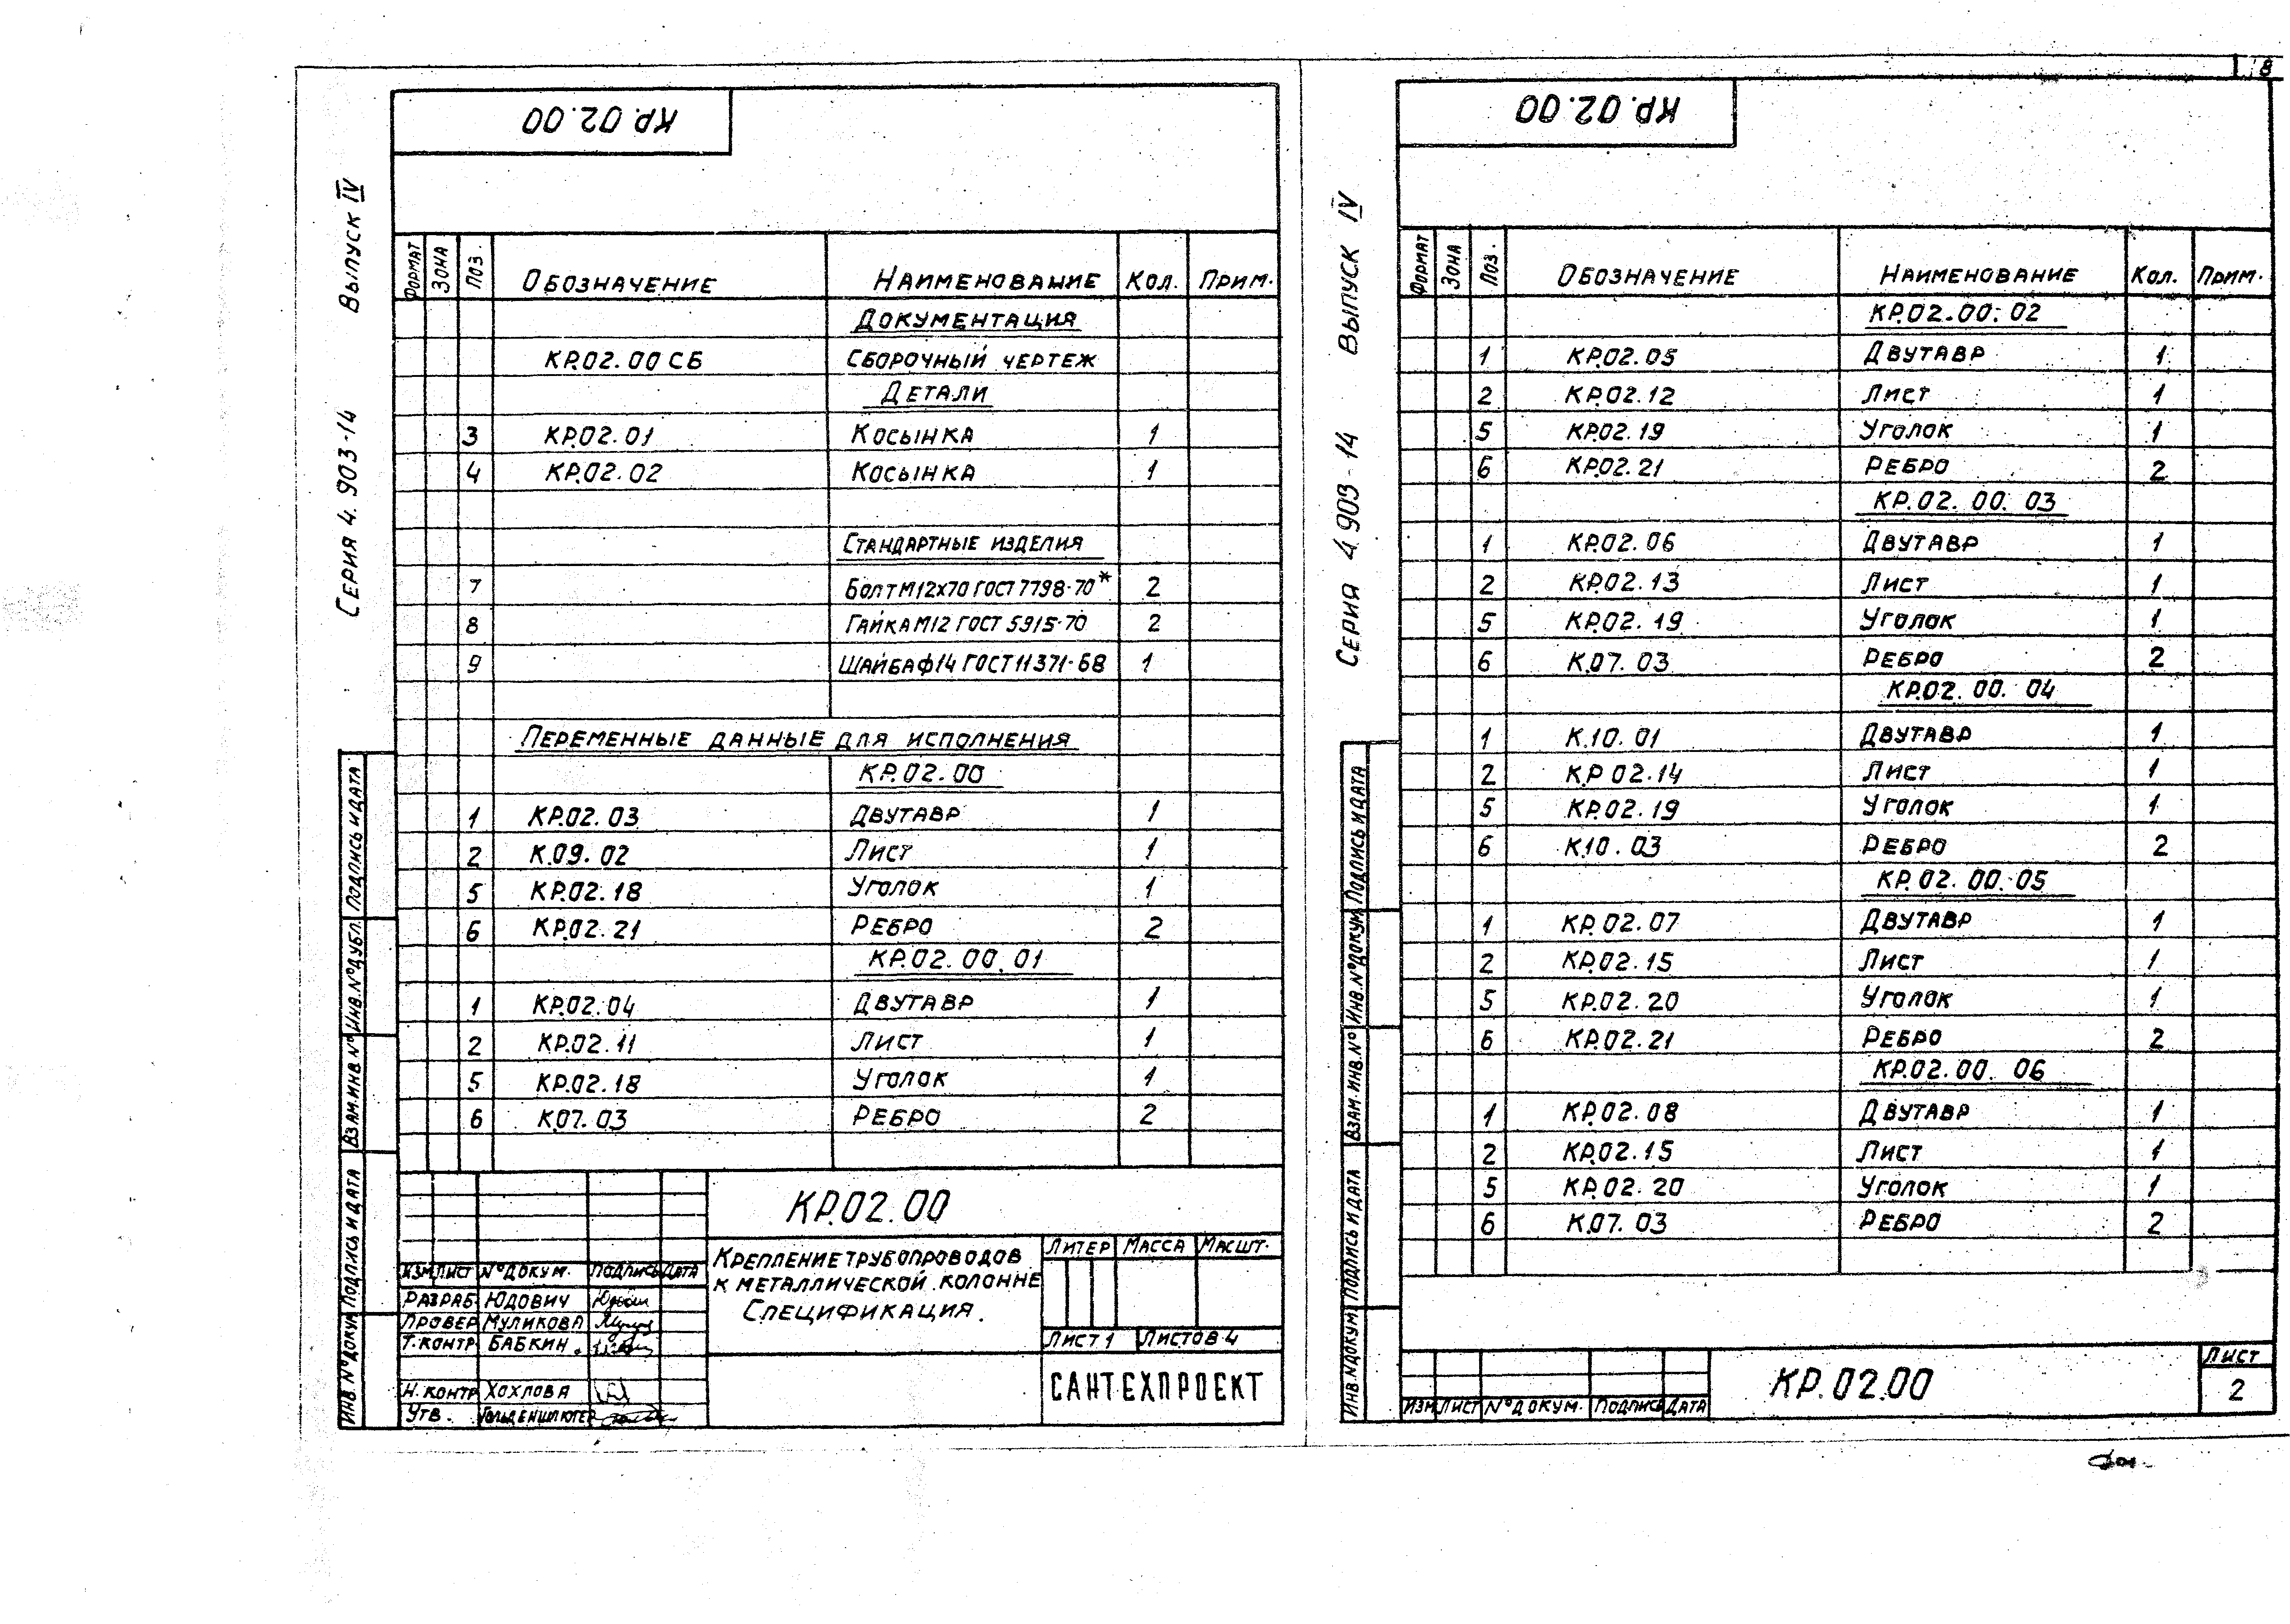 8
КР.02.00
Серия 4.903-14 Выпуск IV
Формат Зона Поз. Обозначение Наименование Кол. Прим.
Документация
КР.02.00 СБ Сборочный чертеж
Детали
3 КР.02.01 Косынка 1
4 КР.02.02 Косынка 1
Стандартные изделия
7 Болт М12х70 ГОСТ 7798-70* 2
8 Гайка М12 ГОСТ 5915-70 2
9 Шайба ф14 ГОСТ 11371-68 1
Переменные данные для исполнения
КР.02.00
1 КР.02.03 Двутавр 1
2 К.09.02 Лист 1
5 КР.02.18 Уголок 1
6 КР.02.21 Ребро 2
КР.02.00.01
1 КР.02.04 Двутавр 1
2 КР.02.11 Лист 1
5 КР.02.18 Уголок 1
6 К.07.03 Ребро 2
Инв.№докум Подпись и дата Взам.инв.№ Инв.№дубл. Подпись и дата
КР.02.00
Крепление трубопроводов
к металлической колонне
Спецификация.
Литер Масса Масшт.
Лист 1 Листов 4
САНТЕХПРОЕКТ
Изм Лист №докум. Подпись Дата
Разраб. Юдович
Провер Муликова
Т.контр. Бабкин.
Н.контр Хохлова
Утв.
КР.02.00
Серия 4.903-14 Выпуск IV
Формат Зона Поз. Обозначение Наименование Кол. Прим.
КР.02.00.02
1 КР.02.05 Двутавр 1
2 КР.02.12 Лист 1
5 КР.02.19 Уголок 1
6 КР.02.21 Ребро 2
КР.02.00.03
1 КР.02.06 Двутавр 1
2 КР.02.13 Лист 1
5 КР.02.19 Уголок 1
6 К.07.03 Ребро 2
КР.02.00.04
1 К.10.01 Двутавр 1
2 КР 02.14 Лист 1
5 КР.02.19 Уголок 1
6 К.10.03 Ребро 2
КР.02.00.05
1 КР.02.07 Двутавр 1
2 КР.02.15 Лист 1
5 КР.02.20 Уголок 1
6 КР.02.21 Ребро 2
КР.02.00.06
1 КР.02.08 Двутавр 1
2 КР.02.15 Лист 1
5 КР.02.20 Уголок 1
6 К.07.03 Ребро 2
Инв.№докум. Подпись и дата Взам.инв.№ Инв.№докум Подпись и дата
Изм Лист №докум. Подпись Дата
КР.02.00
Лист
2